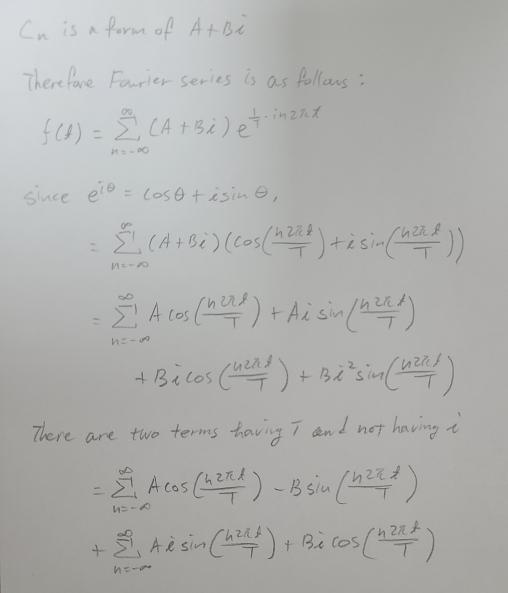 Cn is a form of A+Bi
Therefore Fourier series is as follows:
f(t) = ∑_{n=-∞}^{∞} (A+Bi) e^{\frac{1}{T}·in2πt}
since e^{iθ} = cosθ + i sin θ,
= ∑_{n=-∞}^{∞} (A+Bi)(cos(\frac{n2πt}{T}) + i sin(\frac{n2πt}{T}))
= ∑_{n=-∞}^{∞} A cos(\frac{n2πt}{T}) + Ai sin(\frac{n2πt}{T})
+ Bi cos(\frac{n2πt}{T}) + Bi² sin(\frac{n2πt}{T})
There are two terms having T and not having i
= ∑_{n=-∞}^{∞} A cos(\frac{n2πt}{T}) - B sin(\frac{n2πt}{T})
+ ∑_{n=-∞}^{∞} Ai sin(\frac{n2πt}{T}) + Bi cos(\frac{n2πt}{T})